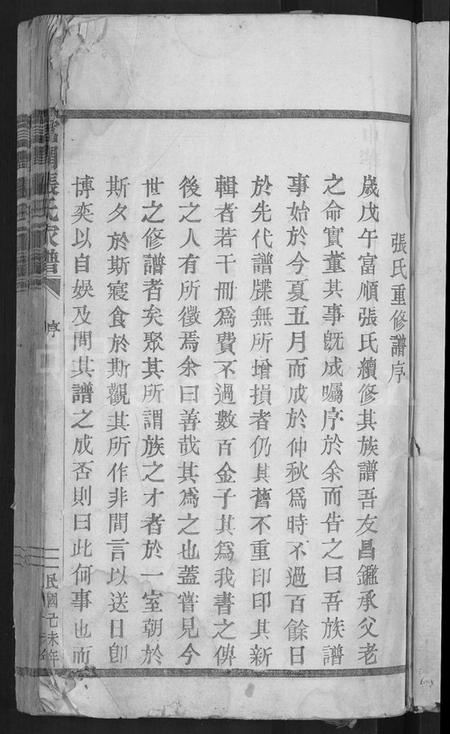 張氏重修譜序
歲戊午富順張氏續修其族譜吾友昌鑑承父老
之命實董其事旣成囑序於余而告之曰吾族譜
事始於今夏五月而成於仲秋爲時不過百餘日
於先代譜牒無所增損者仍其舊不重印印其新
輯者若干冊爲費不過數百金子其爲我書之俾
後之人有所徵焉余曰善哉其爲之也蓋嘗見今
世之修譜者矣聚其所謂族之才者於一室朝於
斯夕於斯寢食於斯觀其所作非閒言以送日卽
博奕以自娛及問其譜之成否則曰此何事也而
張氏家譜
序
民國己未年